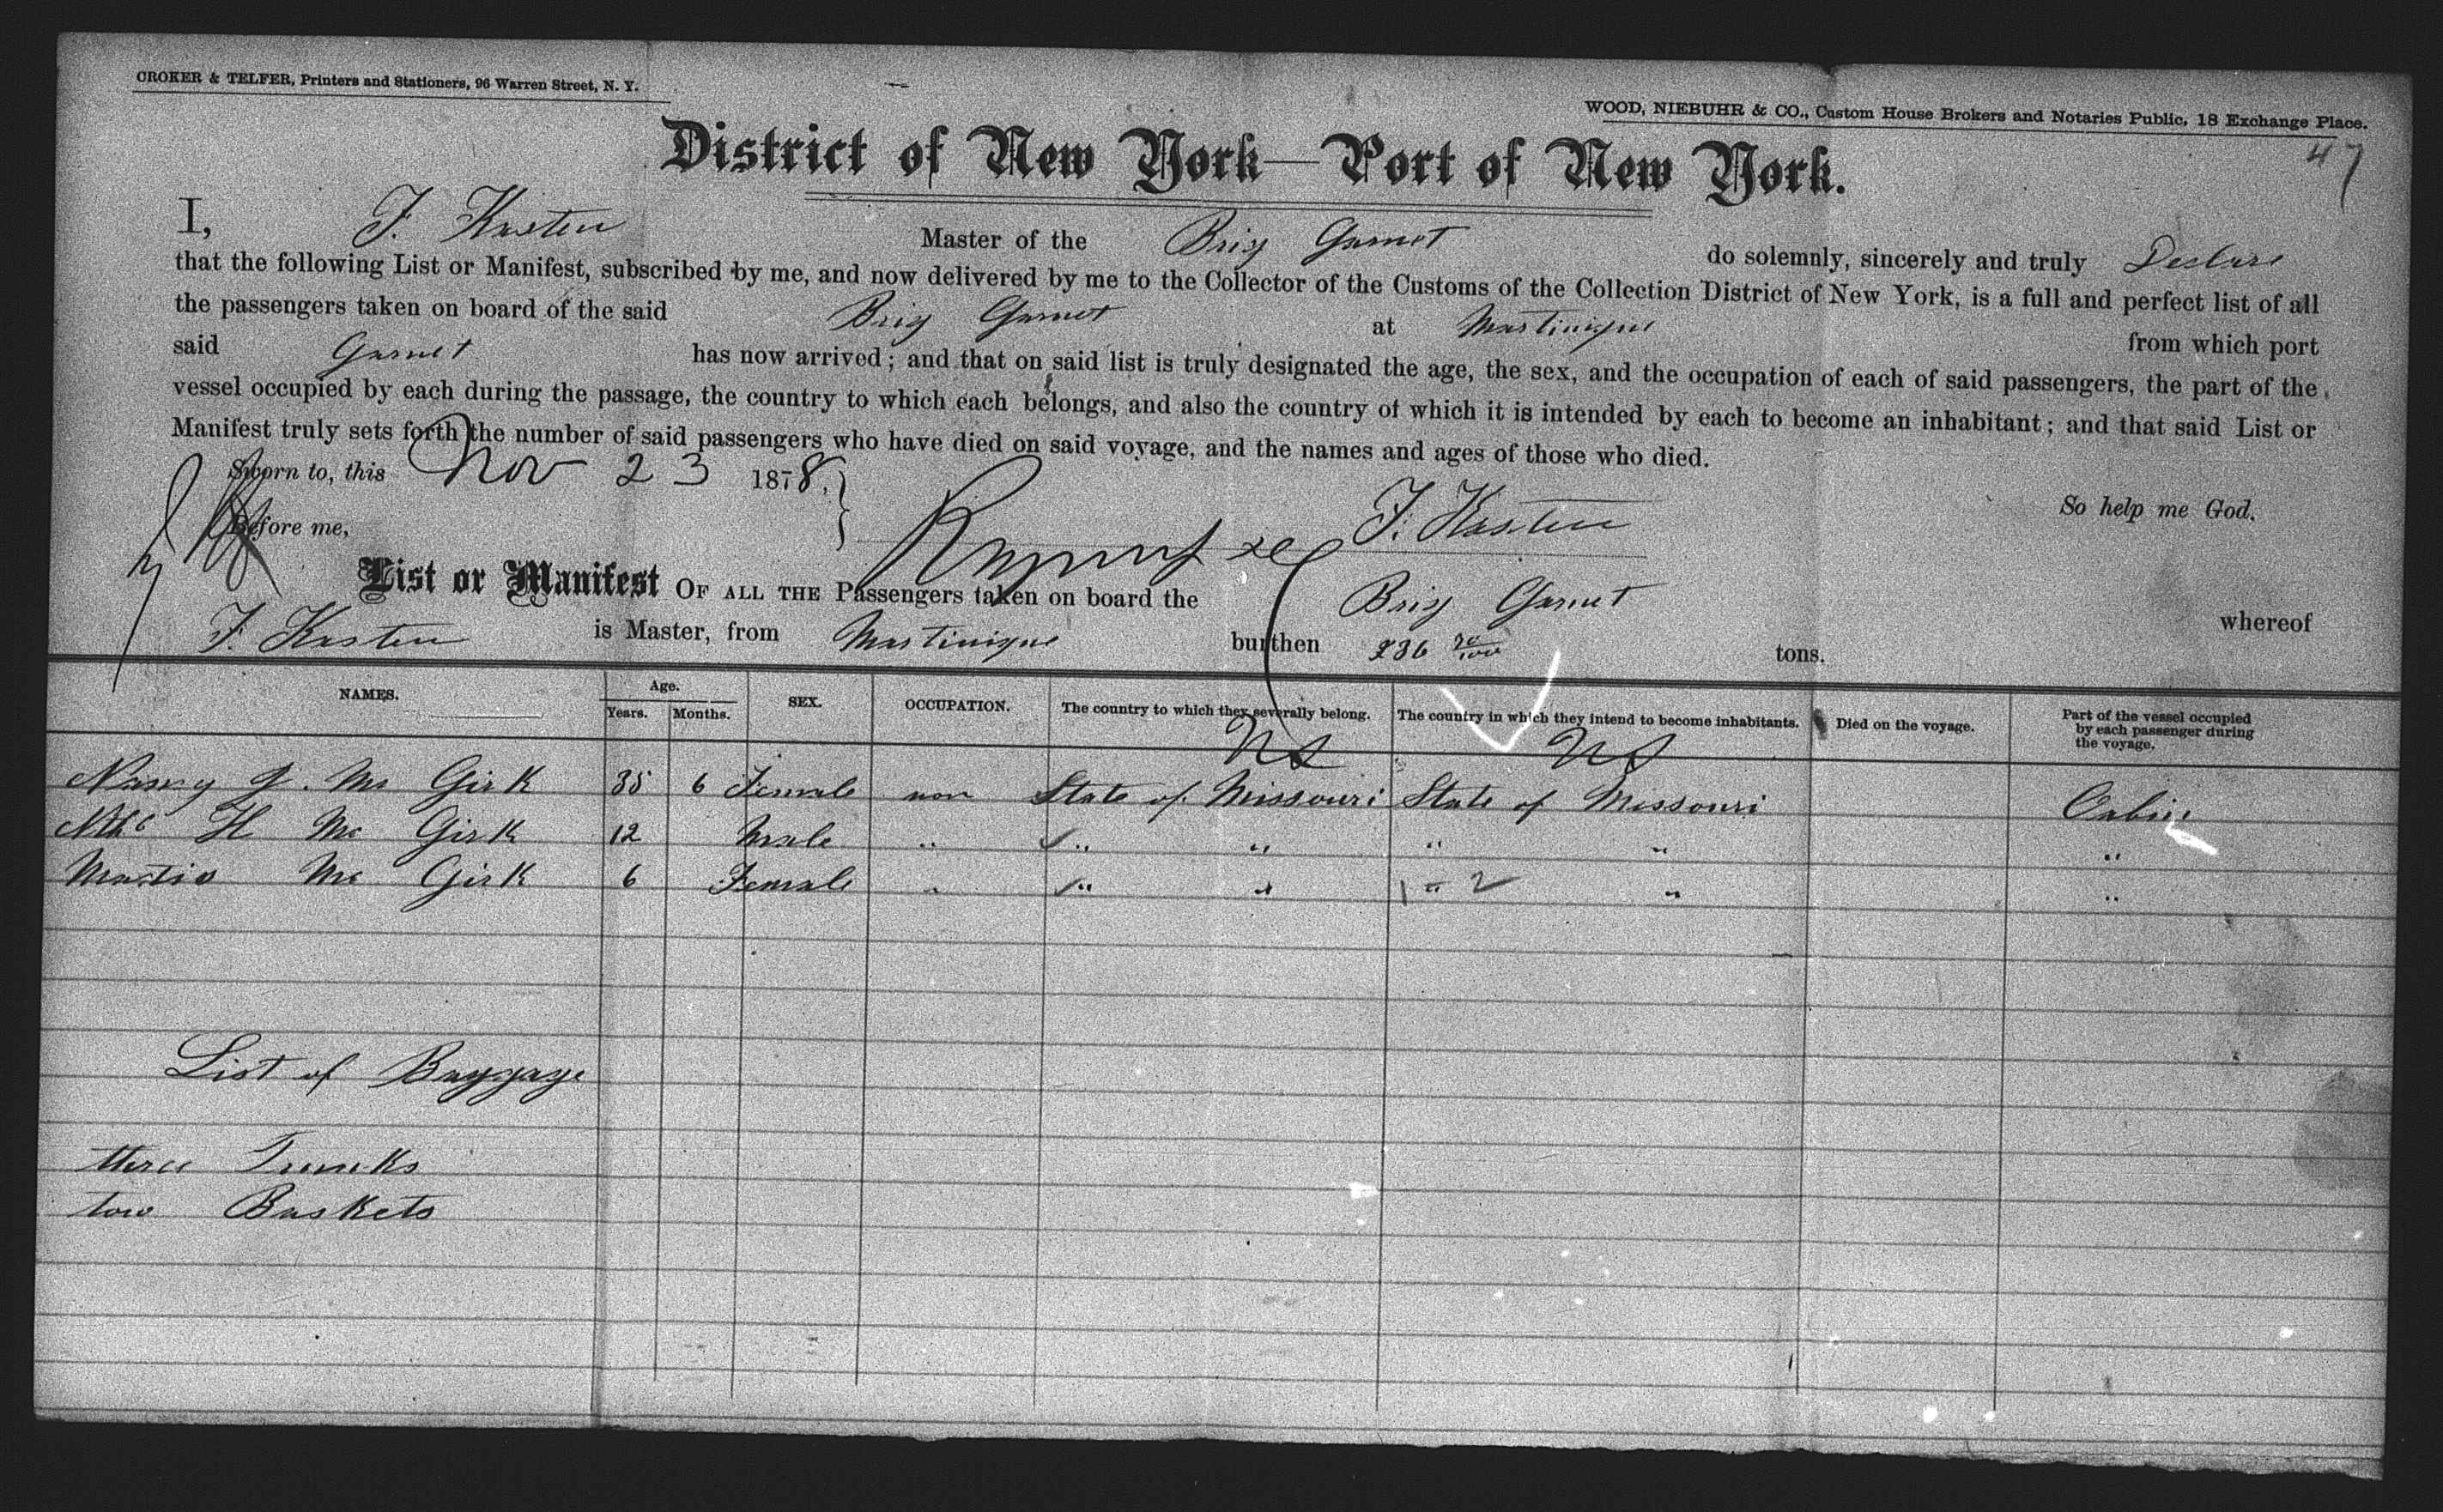 CROKER & TELFER, Printers and Stationers, 96 Warren Street, N. Y.
WOOD, NIEBUHR & CO., Custom House Brokers and Notaries Public, 18 Exchange Place.
47
District of New York—Port of New York.
I, F. Kasten Master of the Brig Garnet do solemnly, sincerely and truly Declare
that the following List or Manifest, subscribed by me, and now delivered by me to the Collector of the Customs of the Collection District of New York, is a full and perfect list of all
the passengers taken on board of the said Brig Garnet at Martinique from which port
said Garnet has now arrived; and that on said list is truly designated the age, the sex, and the occupation of each of said passengers, the part of the
vessel occupied by each during the passage, the country to which each belongs, and also the country of which it is intended by each to become an inhabitant; and that said List or
Manifest truly sets forth the number of said passengers who have died on said voyage, and the names and ages of those who died.
Sworn to, this Nov 23 1878, F. Kasten So help me God.
Before me,
List or Manifest OF ALL THE Passengers taken on board the Brig Garnet whereof
F. Kasten is Master, from Martinique burthen 236 tons.
NAMES. Age. Years. Months. SEX. OCCUPATION. The country to which they severally belong. The country in which they intend to become inhabitants. Died on the voyage. Part of the vessel occupied by each passenger during the voyage.
Nancy J. Mc Girk 35 6 Female non State of Missouri State of Missouri Cabin
H Mc Girk 12 Male " " " " " "
Mc Girk 6 Female " " " " " "
List of Baggage
three Trunks
tow Baskets